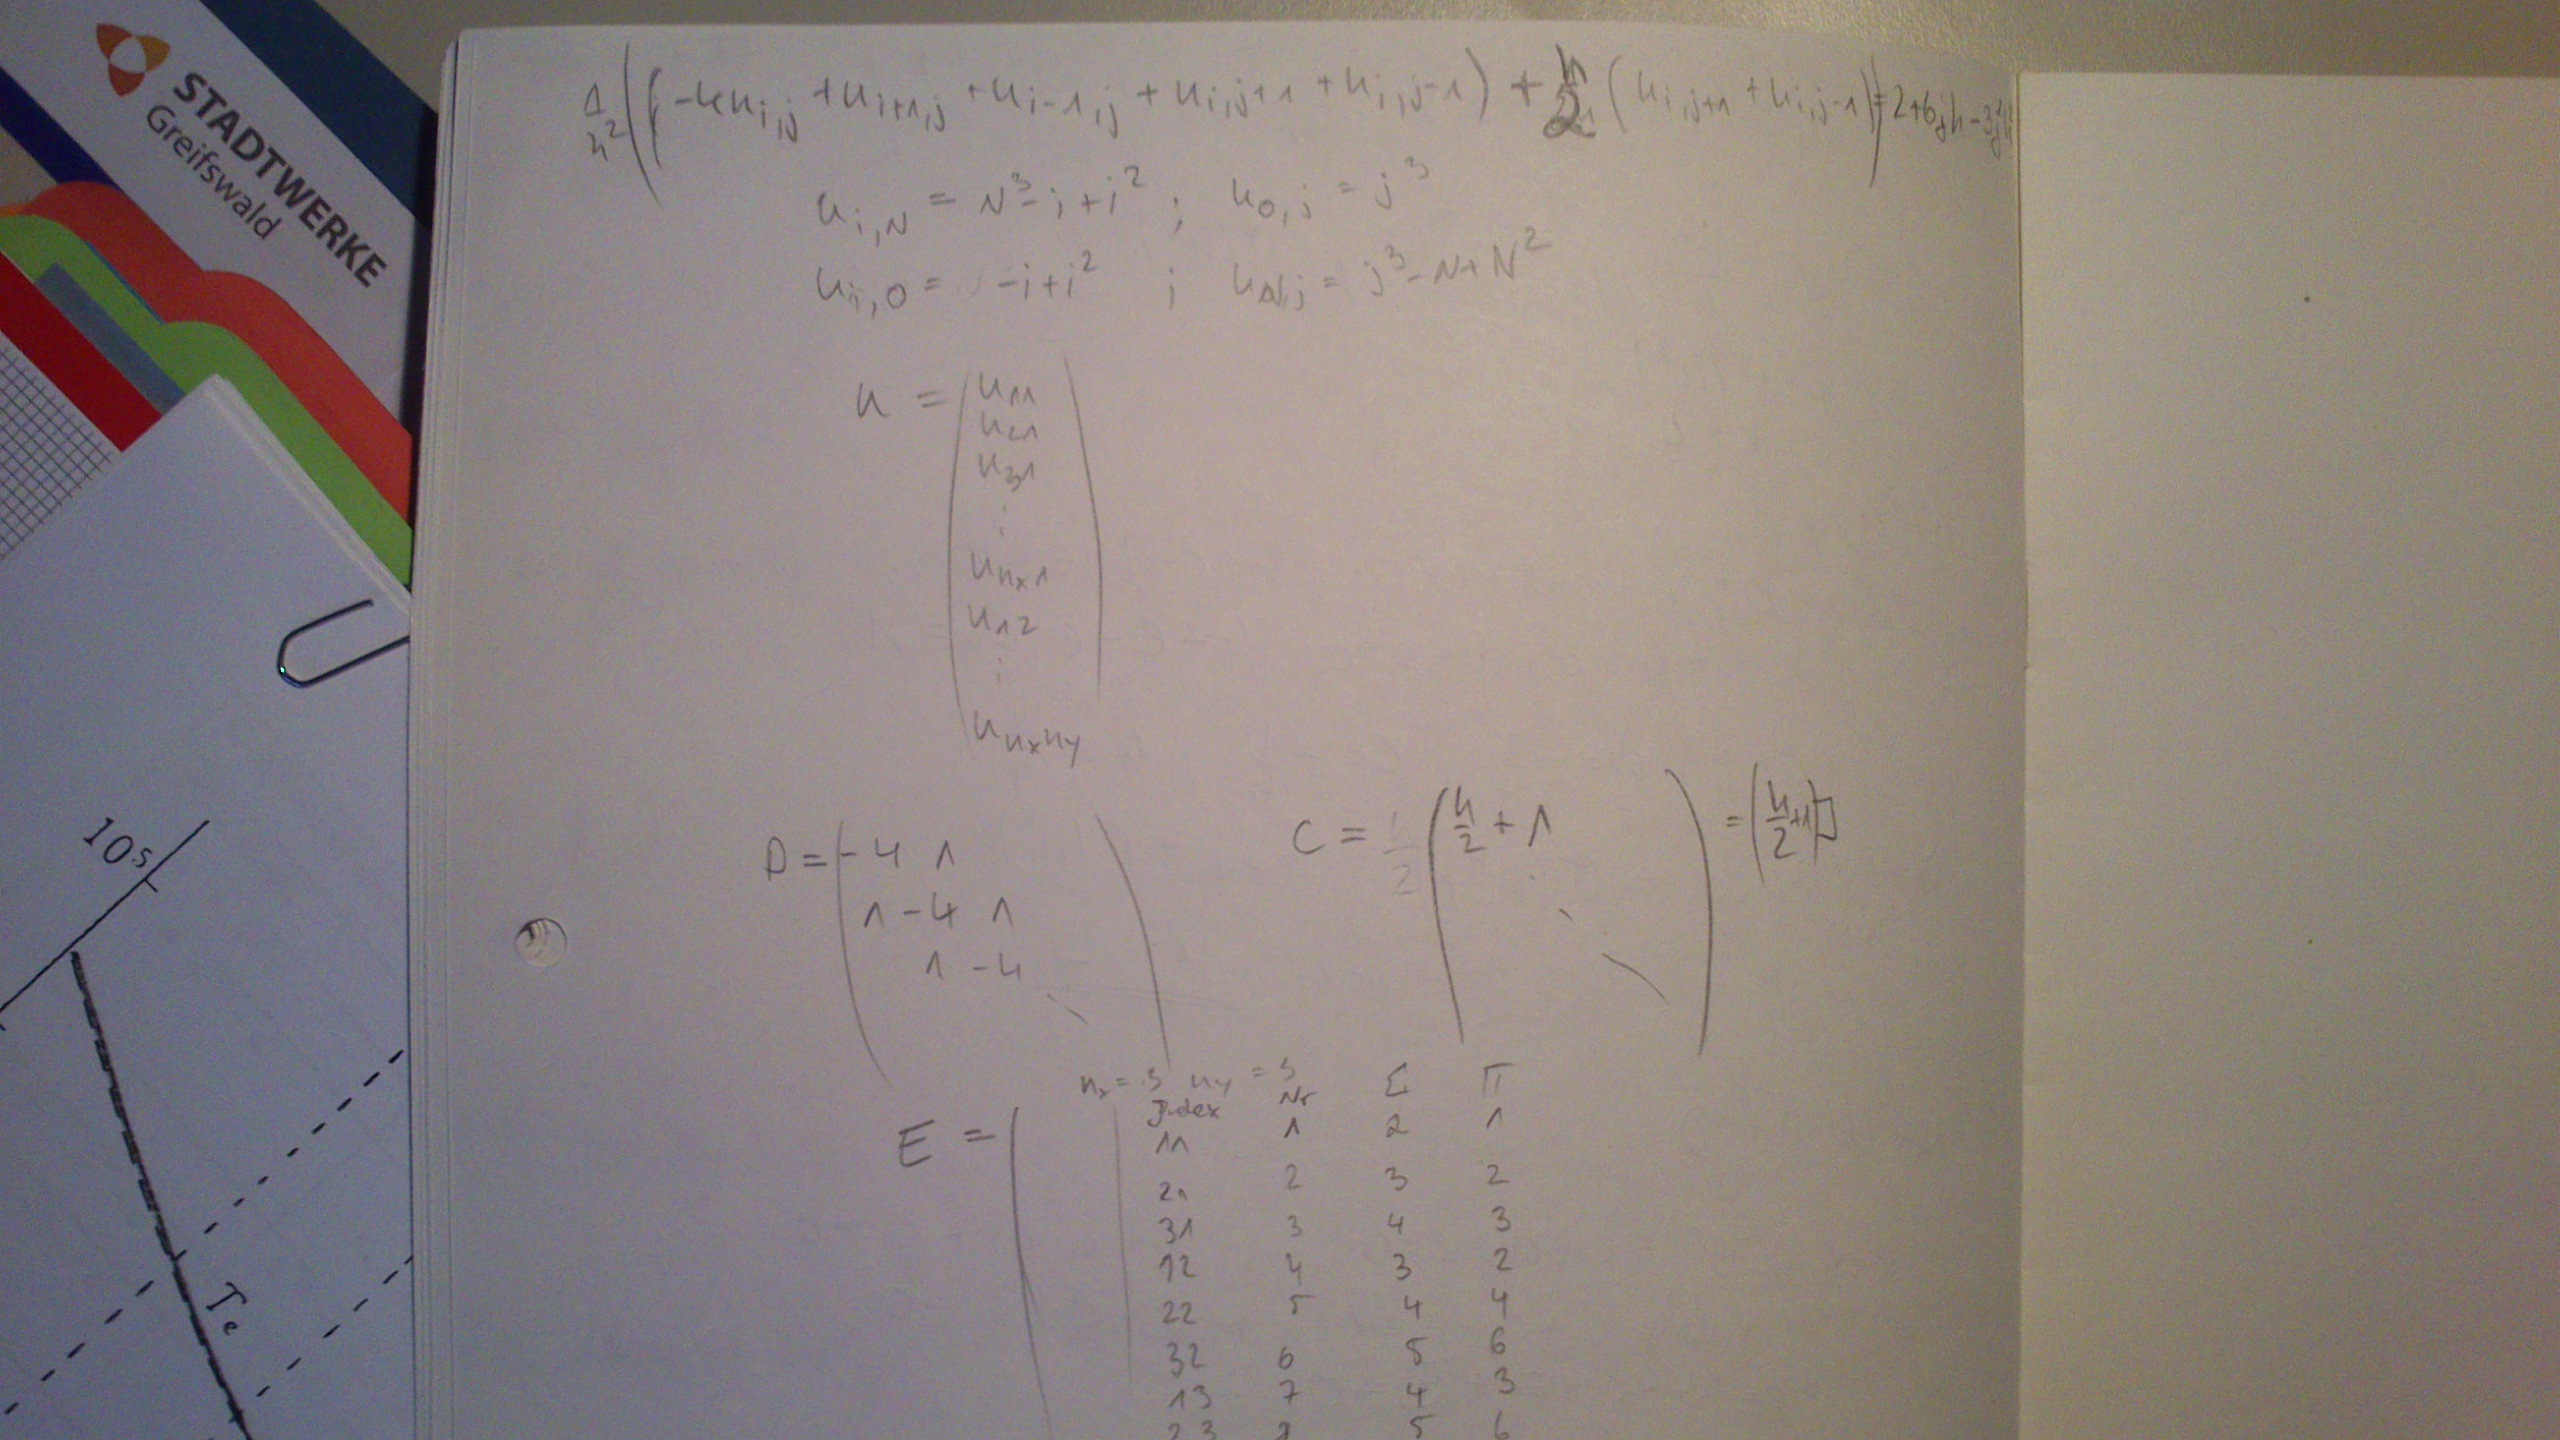 STADTWERKE
Greifswald
1/h² ((-4u_{i,j} + u_{i+1,j} + u_{i-1,j} + u_{i,j+1} + u_{i,j-1}) + h/2 (u_{i,j+1} + u_{i,j-1})) = 2+6jh-3j²h
u_{i,N} = N³-i+i² ; u_{0,j} = j³
u_{i,0} = -i+i² ; u_{N,j} = j³-N+N²
u = (
u₁₁
u₂₁
u₃₁
⋮
u_{nx1}
u₁₂
⋮
u_{nxny}
)
D = ( -4 1
1 -4 1
1 -4
)
C = 1/2 ( h/2 + 1 ) = (h/2+1)
10⁵
Te
nx = 3 ny = 3
E = (
Index Nr Σ Π
11 1 2 1
21 2 3 2
31 3 4 3
12 4 3 2
22 5 4 4
32 6 5 6
13 7 4 3
23 8 5 6